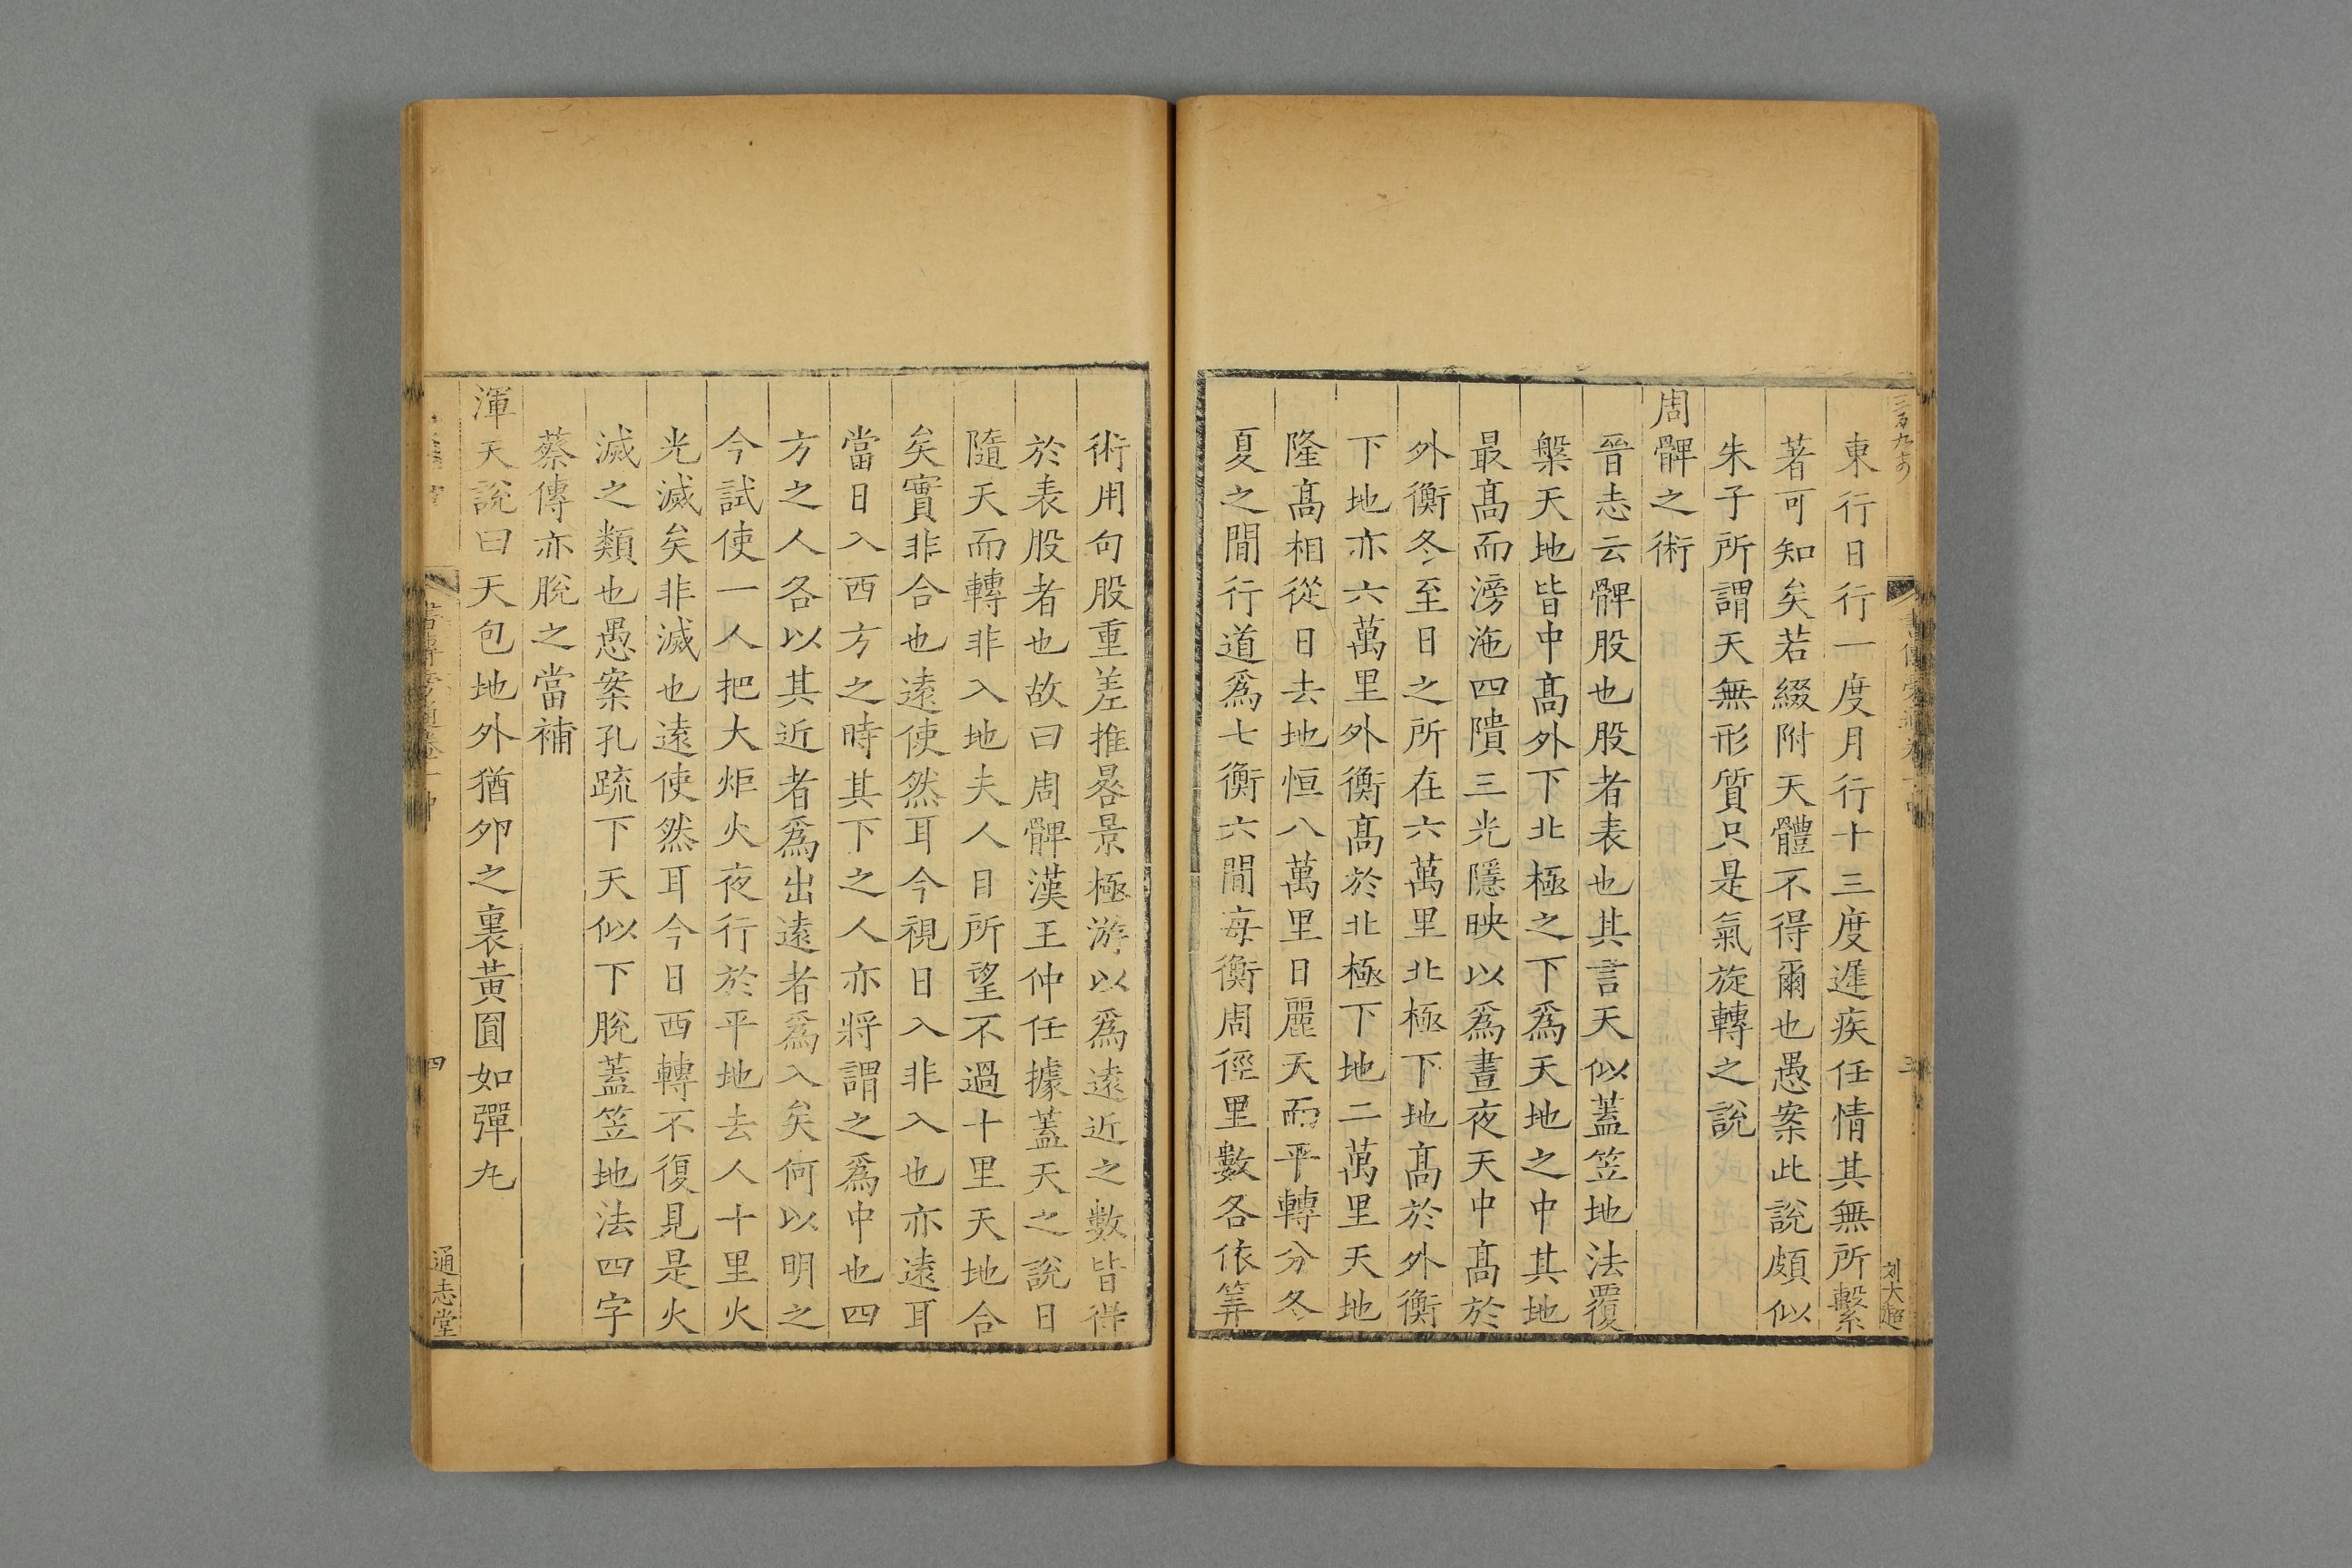 東行日行一度月行十三度遲疾任情其無所繫
著可知矣若綴附天體不得爾也愚案此說頗似
朱子所謂天無形質只是氣旋轉之說
周髀之術
晉志云髀股也股者表也其言天似蓋笠地法覆
槃天地皆中髙外下北極之下爲天地之中其地
最髙而滂沲四隤三光隱映以爲晝夜天中髙於
外衡冬至日之所在六萬里北極下地髙於外衡
下地亦六萬里外衡髙於北極下地二萬里天地
隆髙相從日去地恒八萬里日麗天而平轉分冬
夏之間行道爲七衡六間每衡周徑里數各依筭
術用句股重差推晷景極游以爲遠近之數皆得
於表股者也故曰周髀漢王仲任據蓋天之說日
隨天而轉非入地夫人目所望不過十里天地合
矣實非合也遠使然耳今視日入非入也亦遠耳
當日入西方之時其下之人亦將謂之爲中也四
方之人各以其近者爲出遠者爲入矣何以明之
今試使一人把大炬火夜行於平地去人十里火
光滅矣非滅也遠使然耳今日西轉不復見是火
滅之類也愚案孔疏下天似下脫蓋笠地法四字
蔡傳亦脫之當補
渾天說曰天包地外猶夘之裏黃圓如彈丸
三
刘大超
四
通志堂